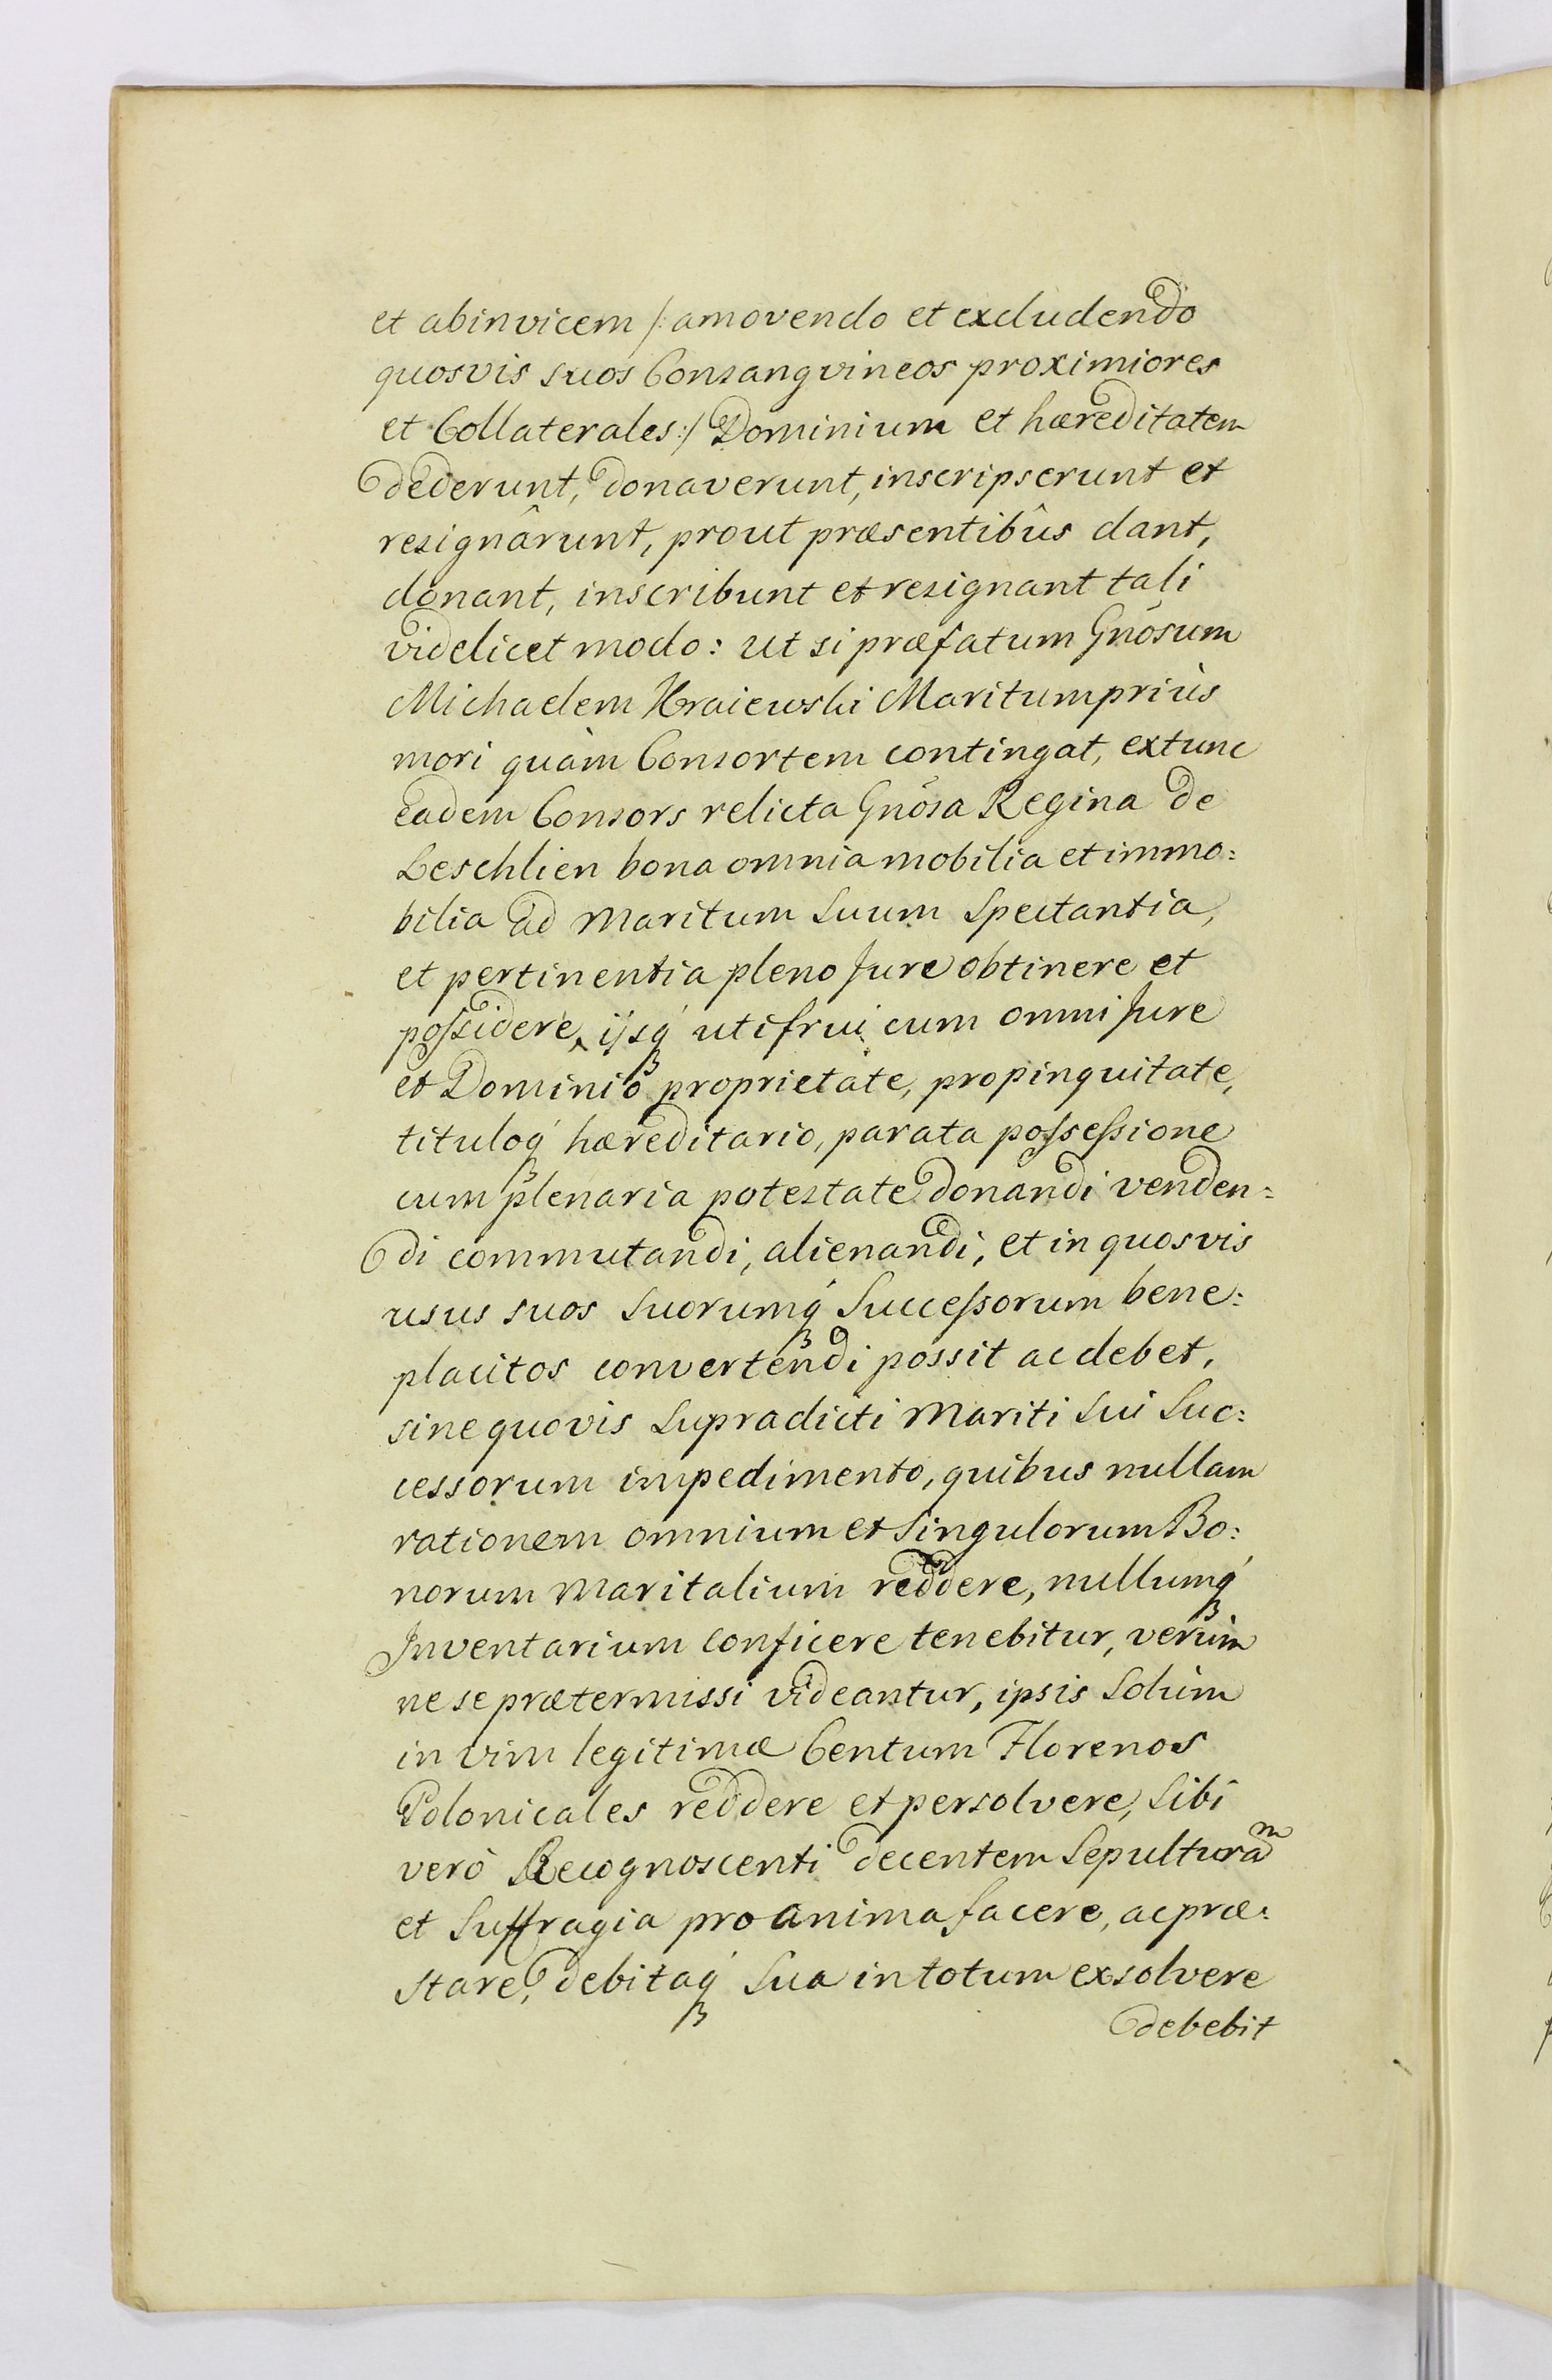 et abinvicem /: amovendo et excludendo
quosvis suos Consangvineos proximiores
et Collaterales :/ Dominium et hæreditatem
dederunt, donaverunt, inscripserunt et
resignârunt, prout præsentibûs dant,
donant, inscribunt et resignant tali
videlicet modo: ut si præfatum Gnōsum
Michaelem Kraiewski Maritum priùs
mori quàm Consortem contingat, extunc
eadem Consors relicta Gnōsa Regina de
Leschlien bona omnia mobilia et immo:
bilia ad Maritum Suum Spectantia,
et pertinentia pleno Jure obtinere et
possidere, ijsq́ɜ uti frui cum omni Jure
et Dominio proprietate, propinquitate,
tituloq́ɜ hæreditario, parata possessione
cum plenaria potestate donandi venden=
di commutandi, alienandi, et in quosvis
usus suos Suorumq́ɜ Successorum bene:
placitos convertendi possit ac debet,
sine quovis Supradicti Mariti Sui Suc:
cessorum impedimento, quibus nullam
rationem omnium et Singulorum Bo:
norum Maritalium reddere, nullumq́ɜ
Inventarium conficere tenebitur, verùm
ne se prætermissi videantur, ipsis Solùm
in vim legitimæ Centum Florenos
Polonicales reddere et persolvere, Sibi
verò Recognoscenti decentem Sepulturaᵐ
et Suffragia pro anima facere, ac præ:
stare, debitaq́ɜ Sua in totum exsolvere
debebit